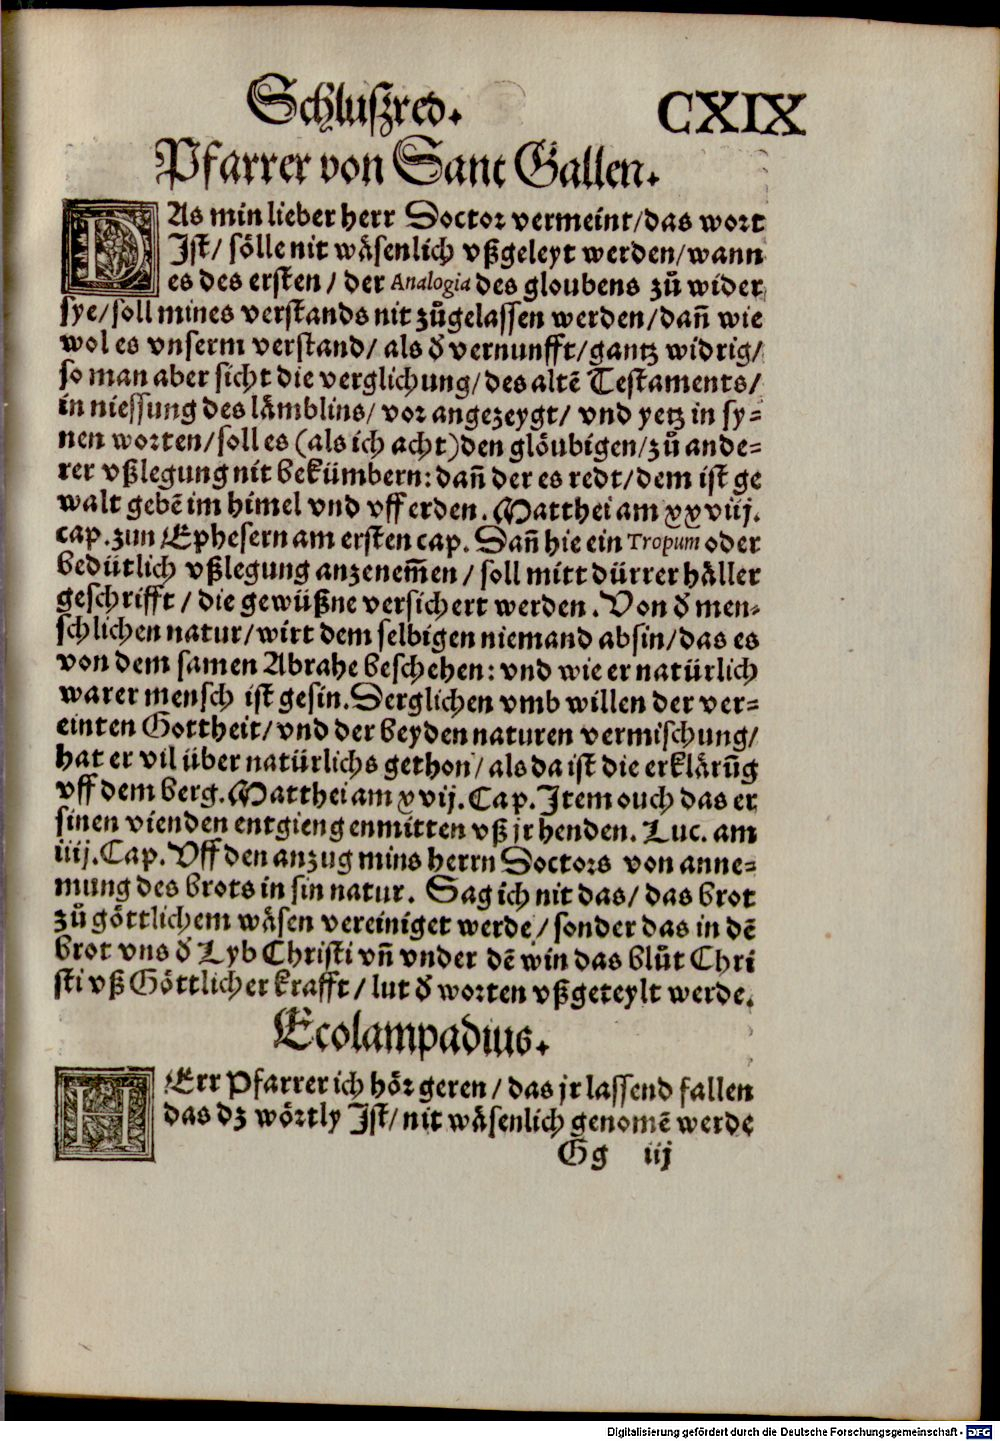 Schluſzred. CXIX
Pfarrer von Sant Gallen.
DAs min lieber herr Doctor vermeint/das wort
Iſt/ ſölle nit wäſenlich vßgeleyt werden/wann
es des erſten / der Analogia des gloubens zů wider
ſye/ſoll mines verſtands nit zůgelaſſen werden/dañ wie
wol es vnſerm verſtand/ als ð vernunfft/gantz widrig/
ſo man aber ſicht die verglichung/des altē Teſtaments/
in nieſſung des lämblins/ vor angezeygt/ vnd yetz in ſy-
nen worten/ſoll es (als ich acht)den glöubigen/zů ande-
rer vßlegung nit bekümbern: dañ der es redt/dem iſt ge
walt gebē im himel vnd vff erden. Matthei am xxviij.
cap. zun Epheſern am erſten cap. Dañ hie ein Tropum oder
bedütlich vßlegung anzenem̃en / ſoll mitt dürrer häller
geſchrifft / die gewüßne verſichert werden. Von ð men-
ſchlichen natur/wirt dem ſelbigen niemand abſin/das es
von dem ſamen Abrahe beſchehen: vnd wie er natürlich
warer menſch iſt geſin. Derglichen vmb willen der ver-
einten Gottheit/vnd der beyden naturen vermiſchung/
hat er vil über natürlichs gethon/ als da iſt die erklärũg
vff dem berg. Matthei am xvij. Cap. Item ouch das er
ſinen vienden entgieng enmitten vß jr henden. Luc. am
iiij. Cap. Vff den anzug mins herrn Doctors von anne-
mung des brots in ſin natur. Sag ich nit das/ das brot
zů göttlichem wäſen vereiniget werde/ ſonder das in dē
brot vns ð Lyb Chriſti vñ vnder dē win das blůt Chri
ſti vß Göttlicher krafft / lut ð worten vßgeteylt werde.
Ecolampadius.
HErr Pfarrer ich hör geren / das jr laſſend fallen
das dz wörtly Iſt/ nit wäſenlich genomē werde
Gg iij
Digitalisierung gefördert durch die Deutsche Forschungsgemeinschaft - DFG